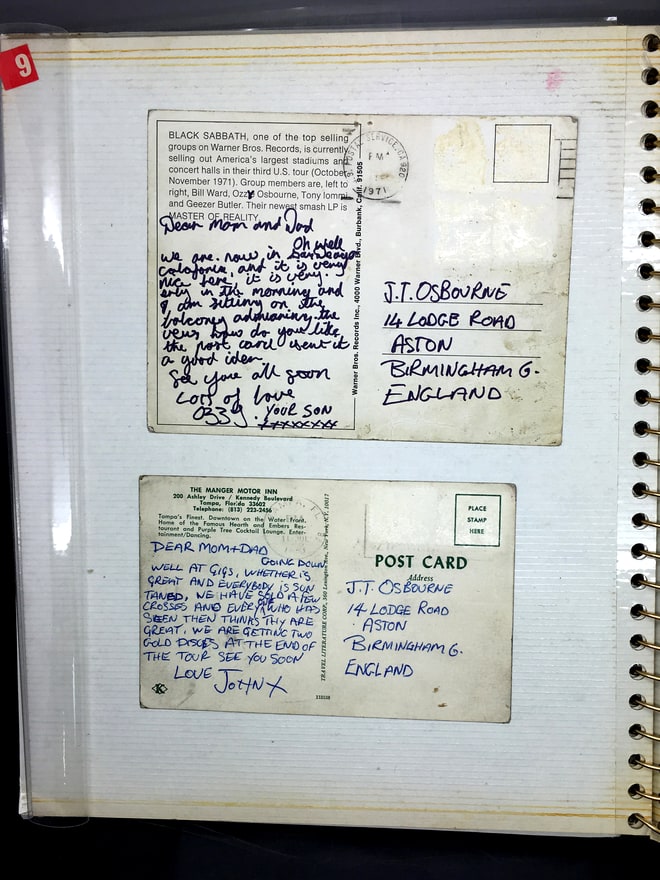 9
BLACK SABBATH, one of the top selling
groups on Warner Bros. Records, is currently
selling out America's largest stadiums and
concert halls in their third U.S. tour (October-
November 1971). Group members are, left to
right, Bill Ward, Ozzy Osbourne, Tony Iommi
and Geezer Butler. Their newest smash LP is
MASTER OF REALITY.
Dear Mom and Dad
Oh well
we are. now in
and it is very
nice here, it is very.
in the morning and
I am sitting on the
balcony the
how do you like
the post card isent it
a good idea,
See you all soon
Lots of love
YOUR SON
xxxxxxxx
Warner Bros. Records Inc., 4000 Warner Blvd., Burbank, Calif. 91505
POSTAL SERVICE, CA 920
PM
1971
J.T. OSBOURNE
14 LODGE ROAD
ASTON
BIRMINGHAM 6.
ENGLAND
THE MANGER MOTOR INN
200 Ashley Drive / Kennedy Boulevard
Tampa, Florida 33602
Telephone: (813) 223-2456
Tampa's Finest. Downtown on the Water Front.
Home of the Famous Hearth and Embers Res-
taurant and Purple Tree Cocktail Lounge. Enter-
tainment/Dancing.
DEAR MOM+DAD
GOING DOWN
WELL AT GIGS, WHETHER IS
GREAT AND EVERYBODY IS SUN
TANED, WE HAVE SOLD A FEW
CROSSES AND EVERY WHO HAS
SEEN THEN THINKS THY ARE
GREAT, WE ARE GETTING TWO
GOLD DISCS AT THE END OF
THE TOUR SEE YOU SOON
LOVE JOHN X
K
TRAVEL LITERATURE CORP., New York, N.Y. 10017
PLACE
STAMP
HERE
POST CARD
Address
J.T. OSBOURNE
14 LODGE ROAD
ASTON
BIRMINGHAM 6.
ENGLAND